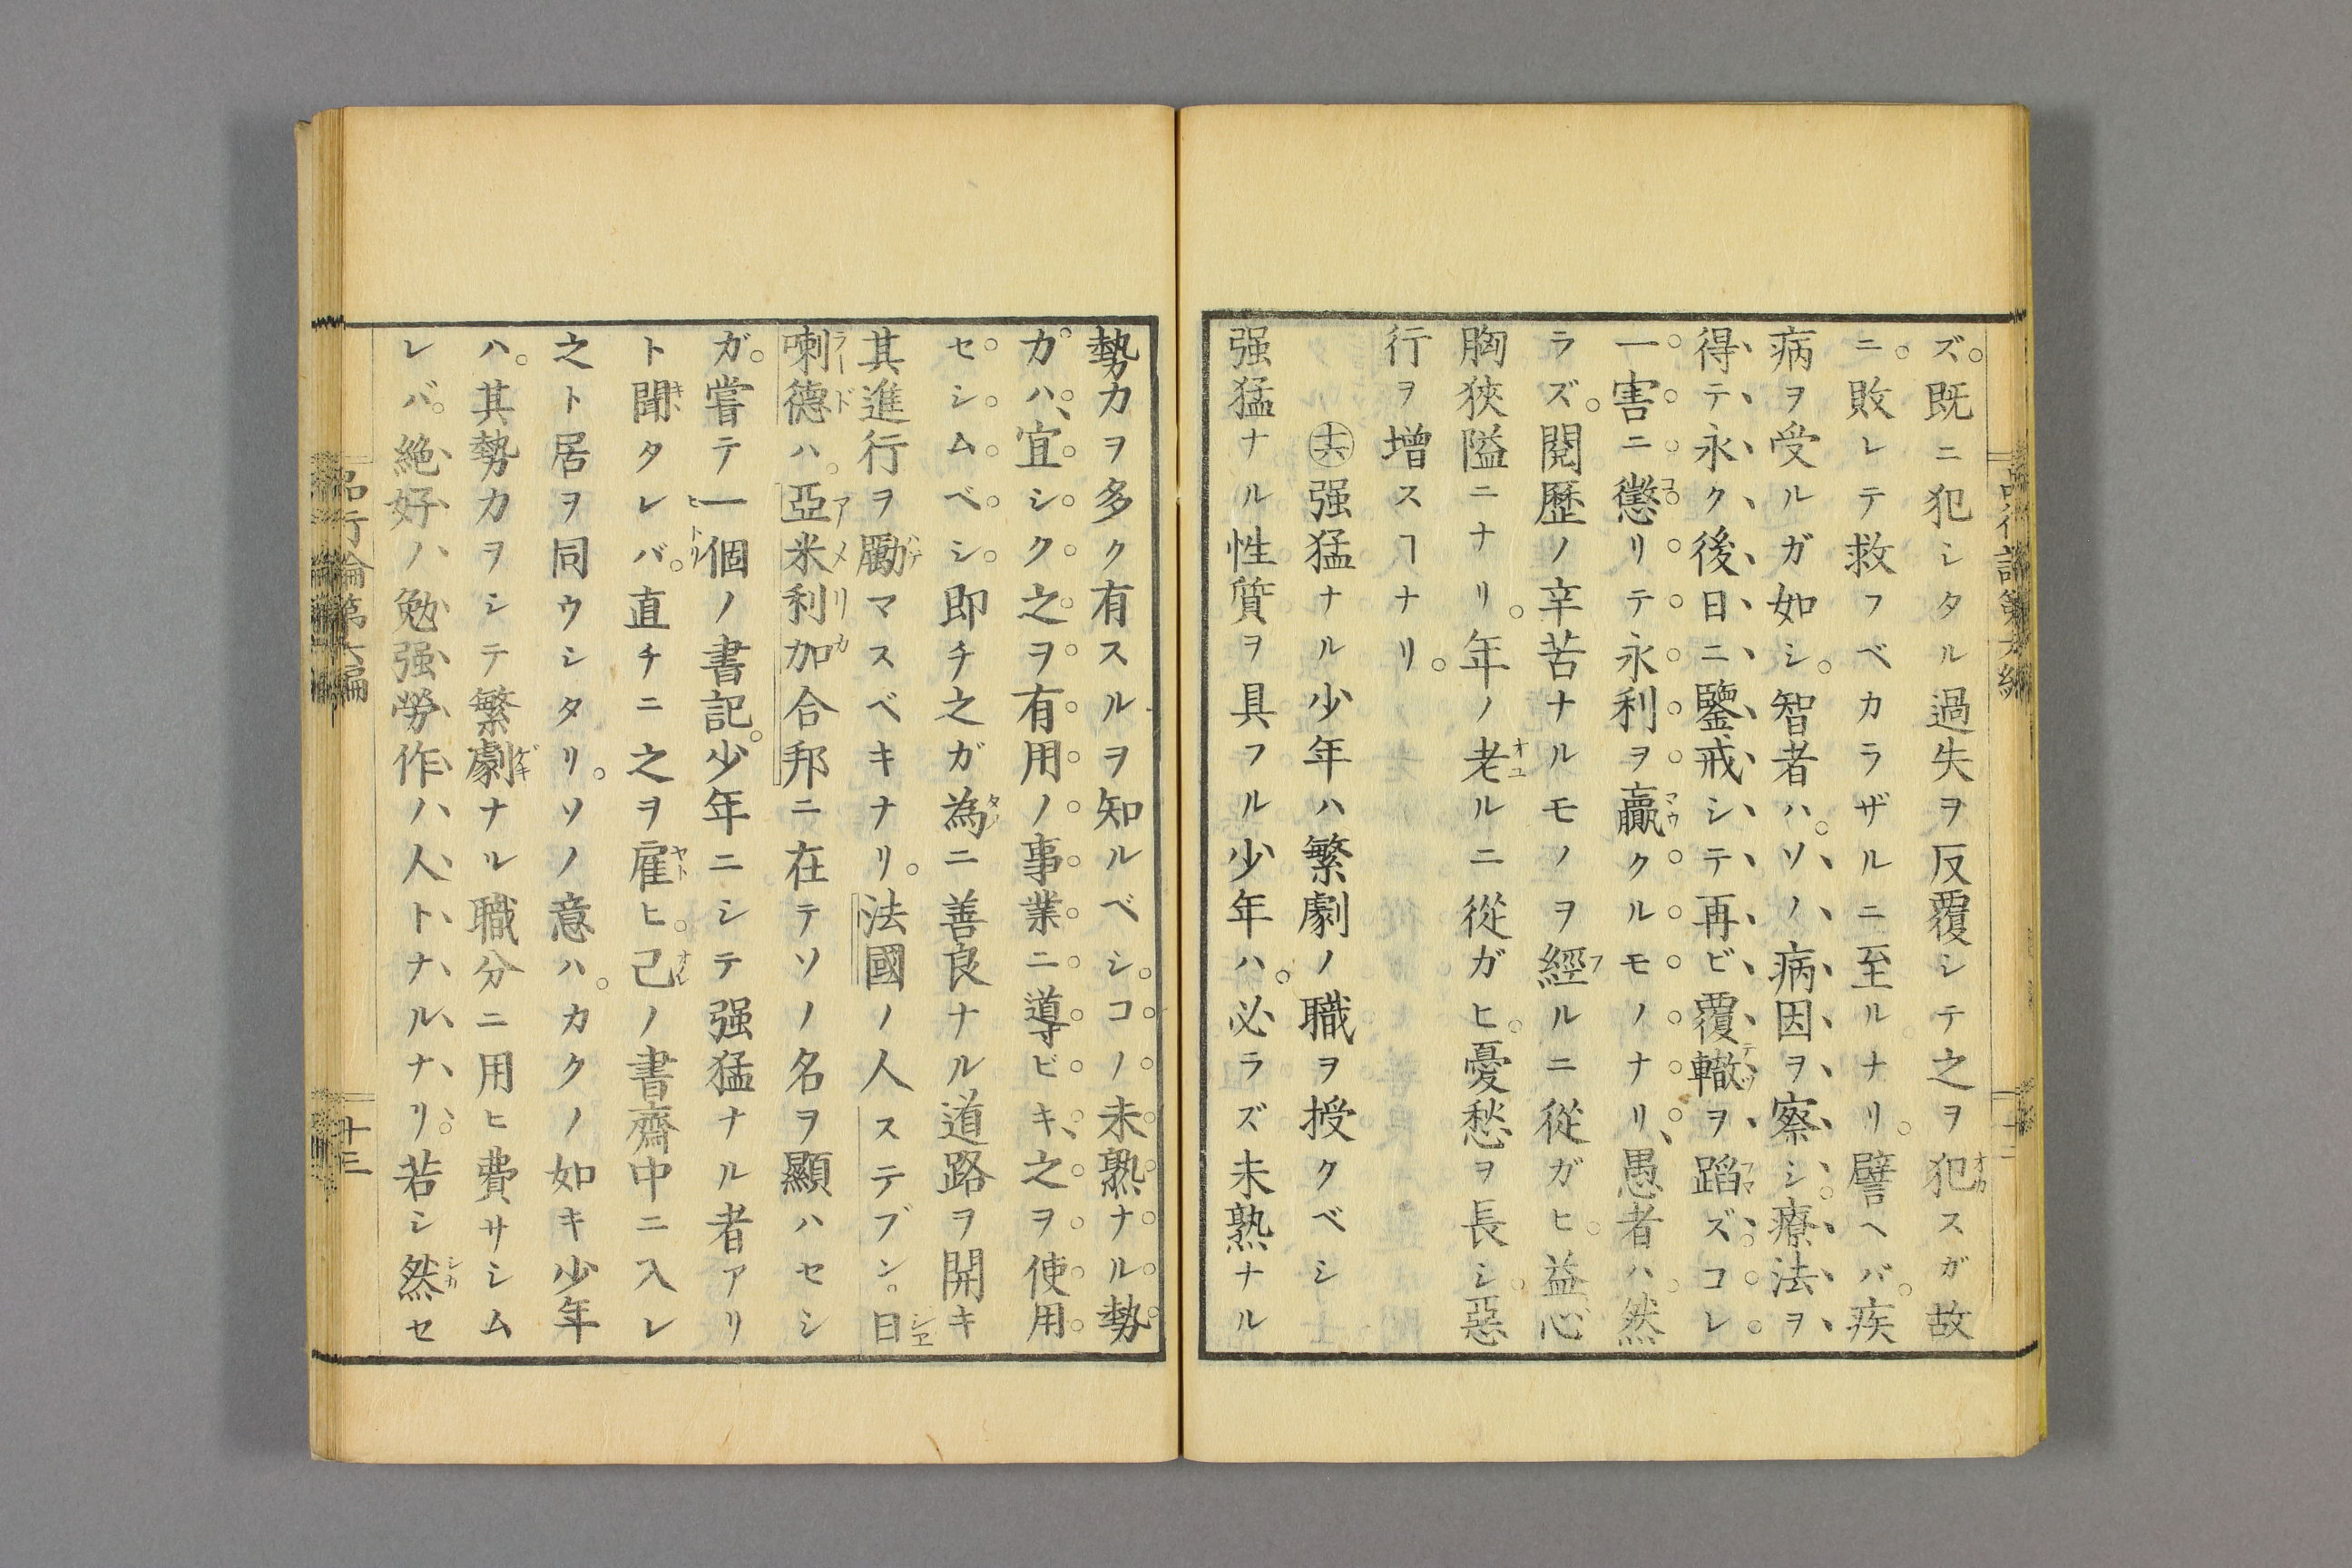 ズ。既ニ犯シタル過失ヲ反覆シテ之ヲ犯スガ故
ニ。敗レテ救フベカラザルニ至ルナリ。譬ヘバ。疾
病ヲ受ルガ如シ。智者ハ。ソノ病因ヲ察シ。療法ヲ
得テ永ク後日ニ鑒戒シテ再ビ覆轍ヲ蹈ズ。コレ
一害ニ懲リテ永利ヲ贏クルモノナリ、愚者ハ。然
ラズ。閱歷ノ辛苦ナルモノヲ經ルニ從ガヒ。益心
胸狹隘ニナリ。年ノ老ルニ從ガヒ。憂愁ヲ長シ。惡
行ヲ增スヿナリ。
㊅強猛ナル少年ハ繁劇ノ職ヲ授クベシ
强猛ナル性質ヲ具フル少年ハ。必ラズ未熟ナル
品行論第六編
十三
勢力ヲ多ク有スルヲ知ルベシ。コノ未熟ナル勢
力ハ、宜シク之ヲ有用ノ事業ニ導ビキ、之ヲ使用
セシムベシ即チ之ガ為ニ善良ナル道路ヲ開キ
其進行ヲ勵マスベキナリ。法國ノ人ステブン。曰
喇德ハ。亞米利加合邦ニ在テソノ名ヲ顯ハセシ
ガ。嘗テ一個ノ書記。少年ニシテ强猛ナル者アリ
ト聞タレバ。直チニ之ヲ雇ヒ。己ノ書齋中ニ入レ
之ト居ヲ同ウシタリ。ソノ意ハ。カクノ如キ少年
ハ。其勢力ヲシテ繁劇ナル職分ニ用ヒ費サシム
レバ。絶好ノ勉强勞作ノ人トナルナリ。若シ然セ